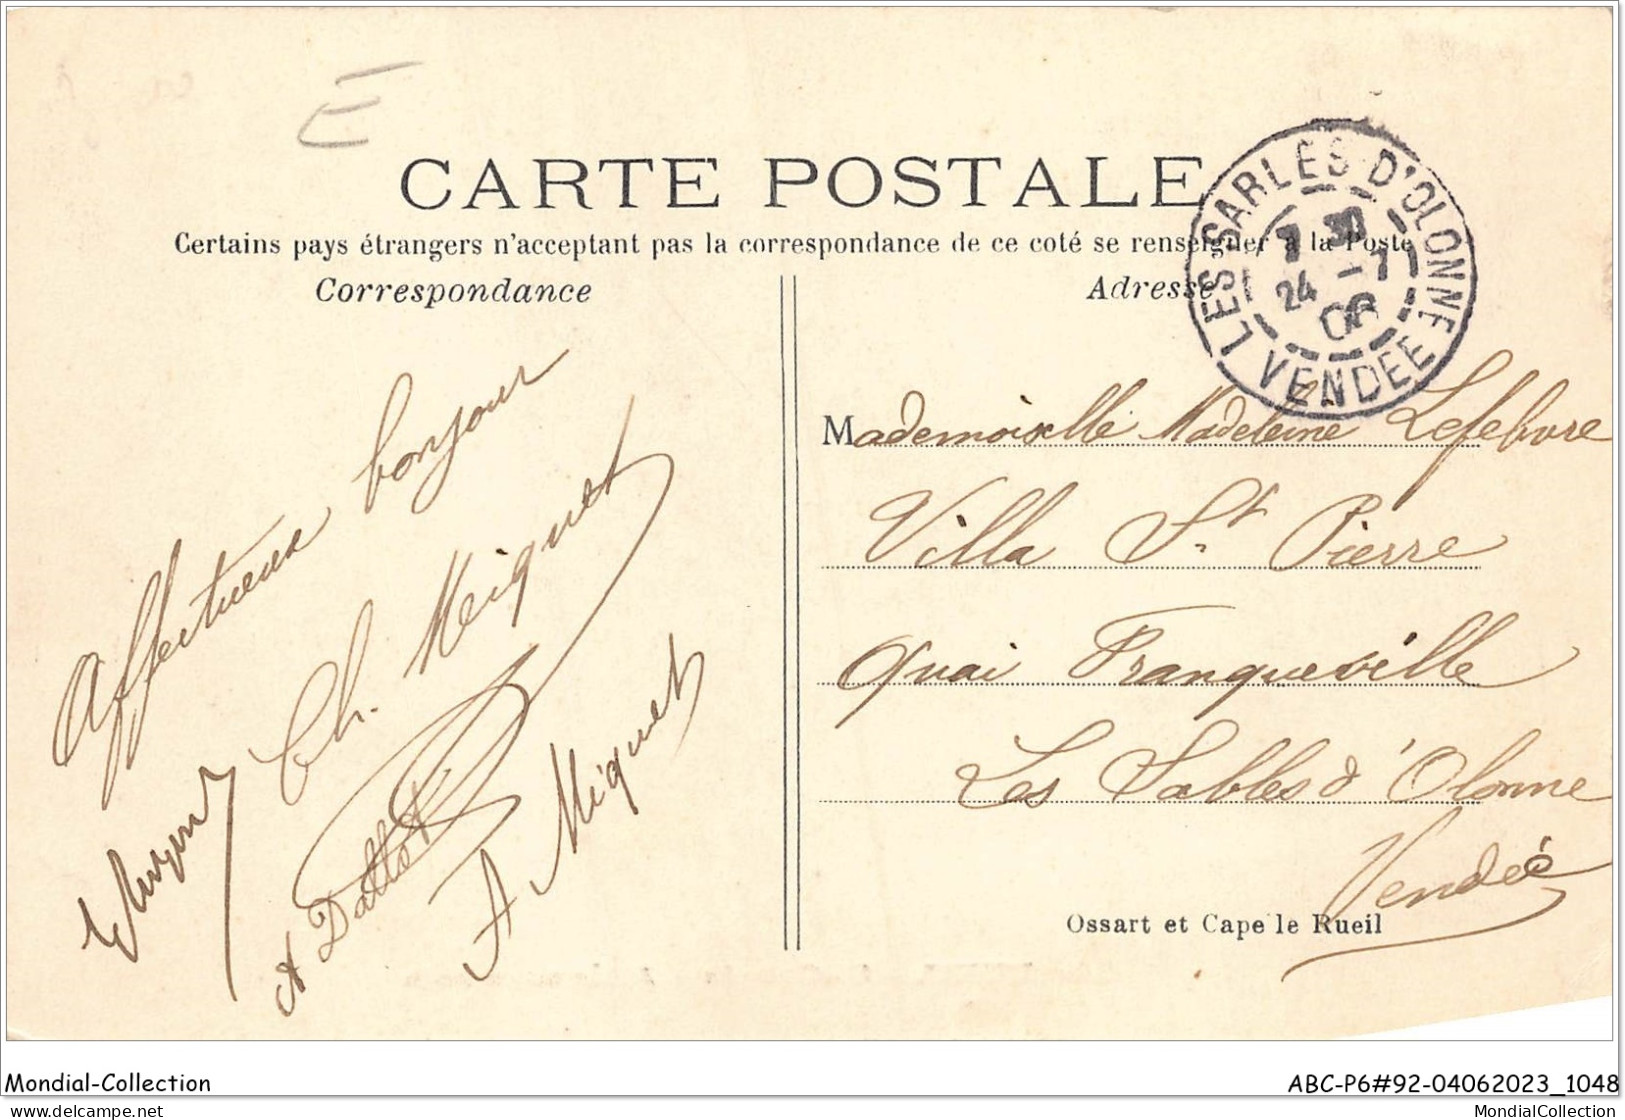 E
CARTE POSTALE
Certains pays étrangers n'acceptant pas la correspondance de ce coté se renseigner à la Poste
Correspondance
Affectueux bonjour
Ch. Miquet
A Dallet
A Miquet
Adresse
LES SABLES D'OLONNE
7 30
24 -7
06
VENDEE
Mademoiselle Madeleine Lefebvre
Villa St. Pierre
Quai Franqueville
Les Sables d'Olonne
Vendée
Ossart et Cape le Rueil
Mondial-Collection
ABC-P6#92-04062023_1048
www.delcampe.net
MondialCollection